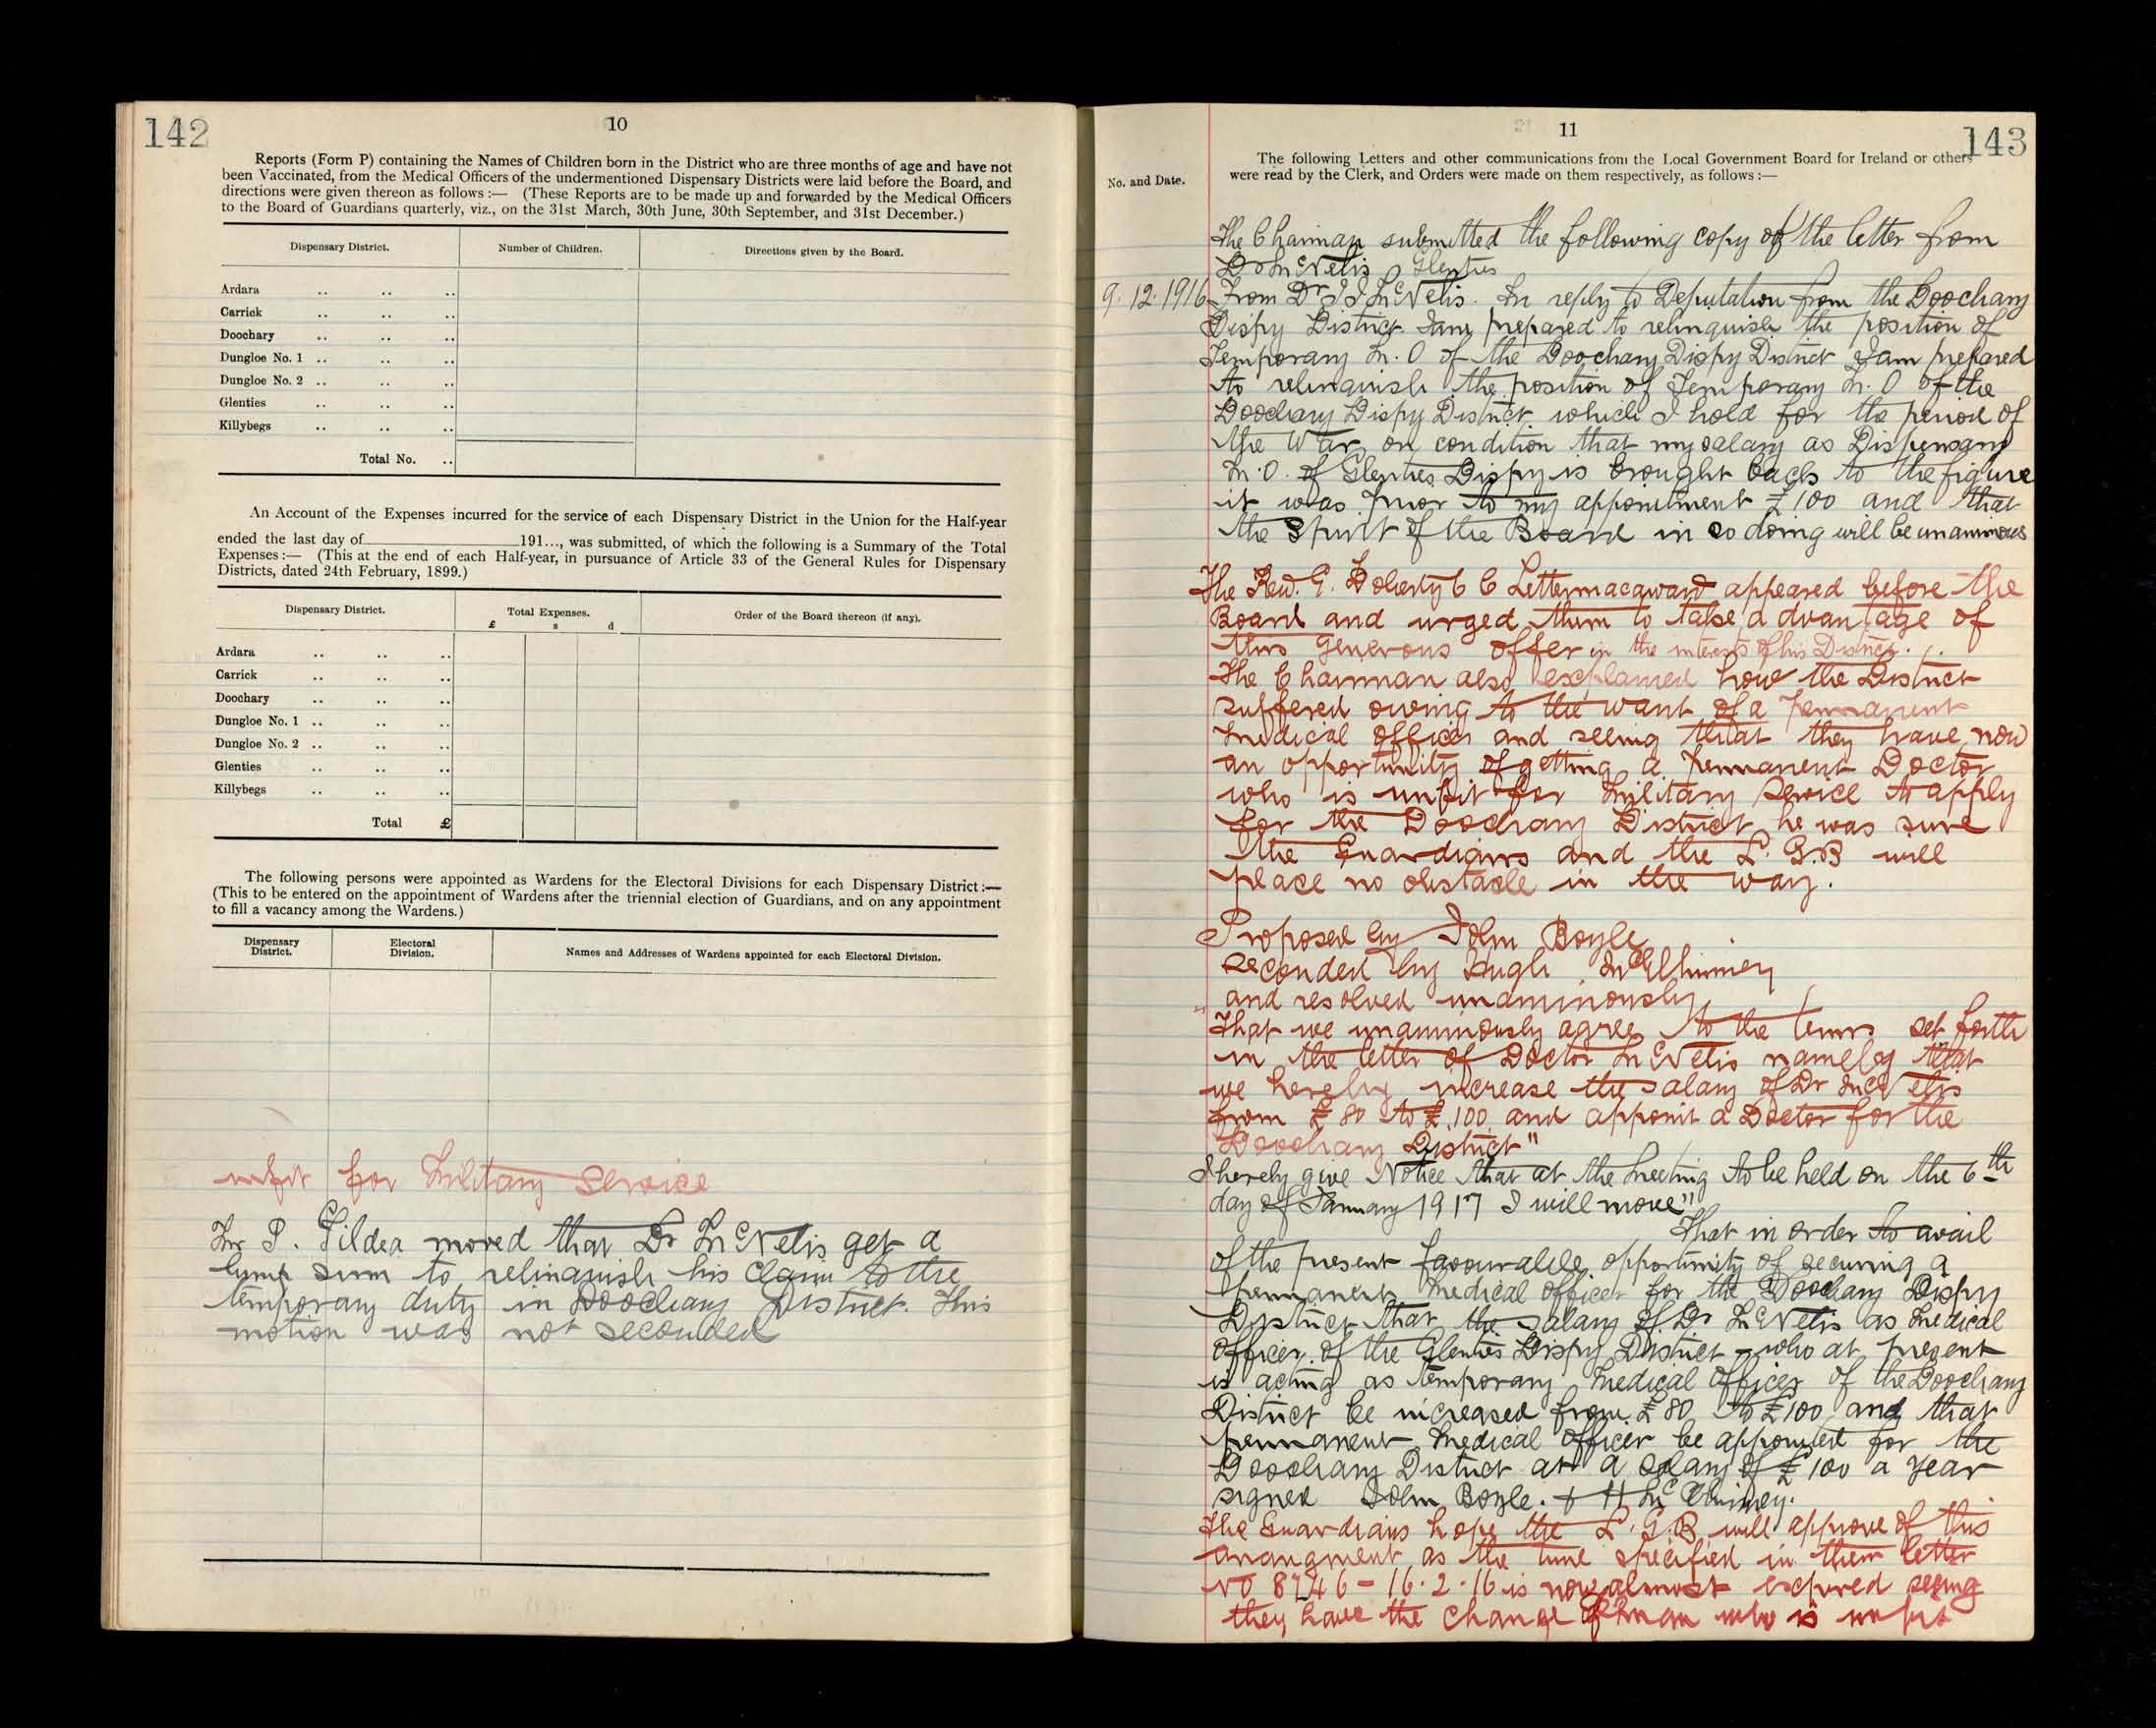 142
10
Reports (Form P) containing the Names of Children born in the District who are three months of age and have not
been Vaccinated, from the Medical Officers of the undermentioned Dispensary Districts were laid before the Board, and
directions were given thereon as follows :— (These Reports are to be made up and forwarded by the Medical Officers
to the Board of Guardians quarterly, viz., on the 31st March, 30th June, 30th September, and 31st December.)
Dispensary District. Number of Children. Directions given by the Board.
Ardara .. .. ..
Carrick .. .. ..
Doochary .. .. ..
Dungloe No. 1 .. .. ..
Dungloe No. 2 .. .. ..
Glenties .. .. ..
Killybegs .. .. ..
Total No. ..
An Account of the Expenses incurred for the service of each Dispensary District in the Union for the Half-year
ended the last day of 191..., was submitted, of which the following is a Summary of the Total
Expenses:— (This at the end of each Half-year, in pursuance of Article 33 of the General Rules for Dispensary
Districts, dated 24th February, 1899.)
Dispensary District. Total Expenses. Order of the Board thereon (if any).
£ s d
Ardara .. .. ..
Carrick .. .. ..
Doochary .. .. ..
Dungloe No. 1 .. .. ..
Dungloe No. 2 .. .. ..
Glenties .. .. ..
Killybegs .. .. ..
Total £
The following persons were appointed as Wardens for the Electoral Divisions for each Dispensary District :—
(This to be entered on the appointment of Wardens after the triennial election of Guardians, and on any appointment
to fill a vacancy among the Wardens.)
Dispensary District. Electoral Division. Names and Addresses of Wardens appointed for each Electoral Division.
unfit for Military Service
Mr P. Gildea moved that Dr McNelis get a
lump sum to relinquish his claim to the
temporary duty in Doochary District. This
motion was not seconded
11
143
The following Letters and other communications from the Local Government Board for Ireland or others
were read by the Clerk, and Orders were made on them respectively, as follows :—
No. and Date.
The Chairman submitted the following copy of the letter from
Dr McNelis Glenties
9.12.1916 From Dr J J McNelis. In reply to Deputation from the Doochary
Dispy District I am prepared to relinquish the position of
Temporary M.O of the Doochary Dispy District I am prepared
to relinquish the position of Temporary M.O of the
Doochary Dispy District which I hold for the period of
the War on condition that my salary as Dispensary
M.O. of Glenties Dispy is brought back to the figure
it was prior to my appointment £100 and that
the Spirit of the Board in so doing will be unanimous
The Rev. G. Doherty C C Lettermacaward appeared before the
Board and urged them to take advantage of
this Generous offer in the interests of his District.
The Chairman also explained how the District
suffered owing to the want of a Permanent
Medical Officer and seeing that they have now
an opportunity of getting a permanent Doctor
who is unfit for Military Service to apply
for the Doochary District he was sure
the Guardians and the L.G.B will
place no obstacle in the way.
Proposed by John Boyle
seconded by Hugh McElhinney
and resolved unaminously
"That we unaminously agree to the terms set forth
in the letter of Doctor McNelis namely that
we hereby increase the salary of Dr McNelis
from £80 to £100 and appoint a Doctor for the
Doochary District"
I hereby give Notice that at the Meeting to be held on the 6th
day of January 1917 I will move"
That in order to avail
of the present favourable opportunity of securing a
permanent Medical officer for the Doochary Dispy
District that the salary of Dr McNelis as Medical
Officer of the Glenties Dispy District who at present
is acting as temporary Medical Officer of the Doochary
District be increased from £80 to £100 and that
permanent Medical Officer be appointed for the
Doochary District at a salary of £100 a year
signed John Boyle. + H McElhinney.
The Guardians hope the L.G.B will approve of this
arrangment as the time specified in their letter
No 8746-16.2.16 is now almost expired seeing
they have the chance of man who is unfit